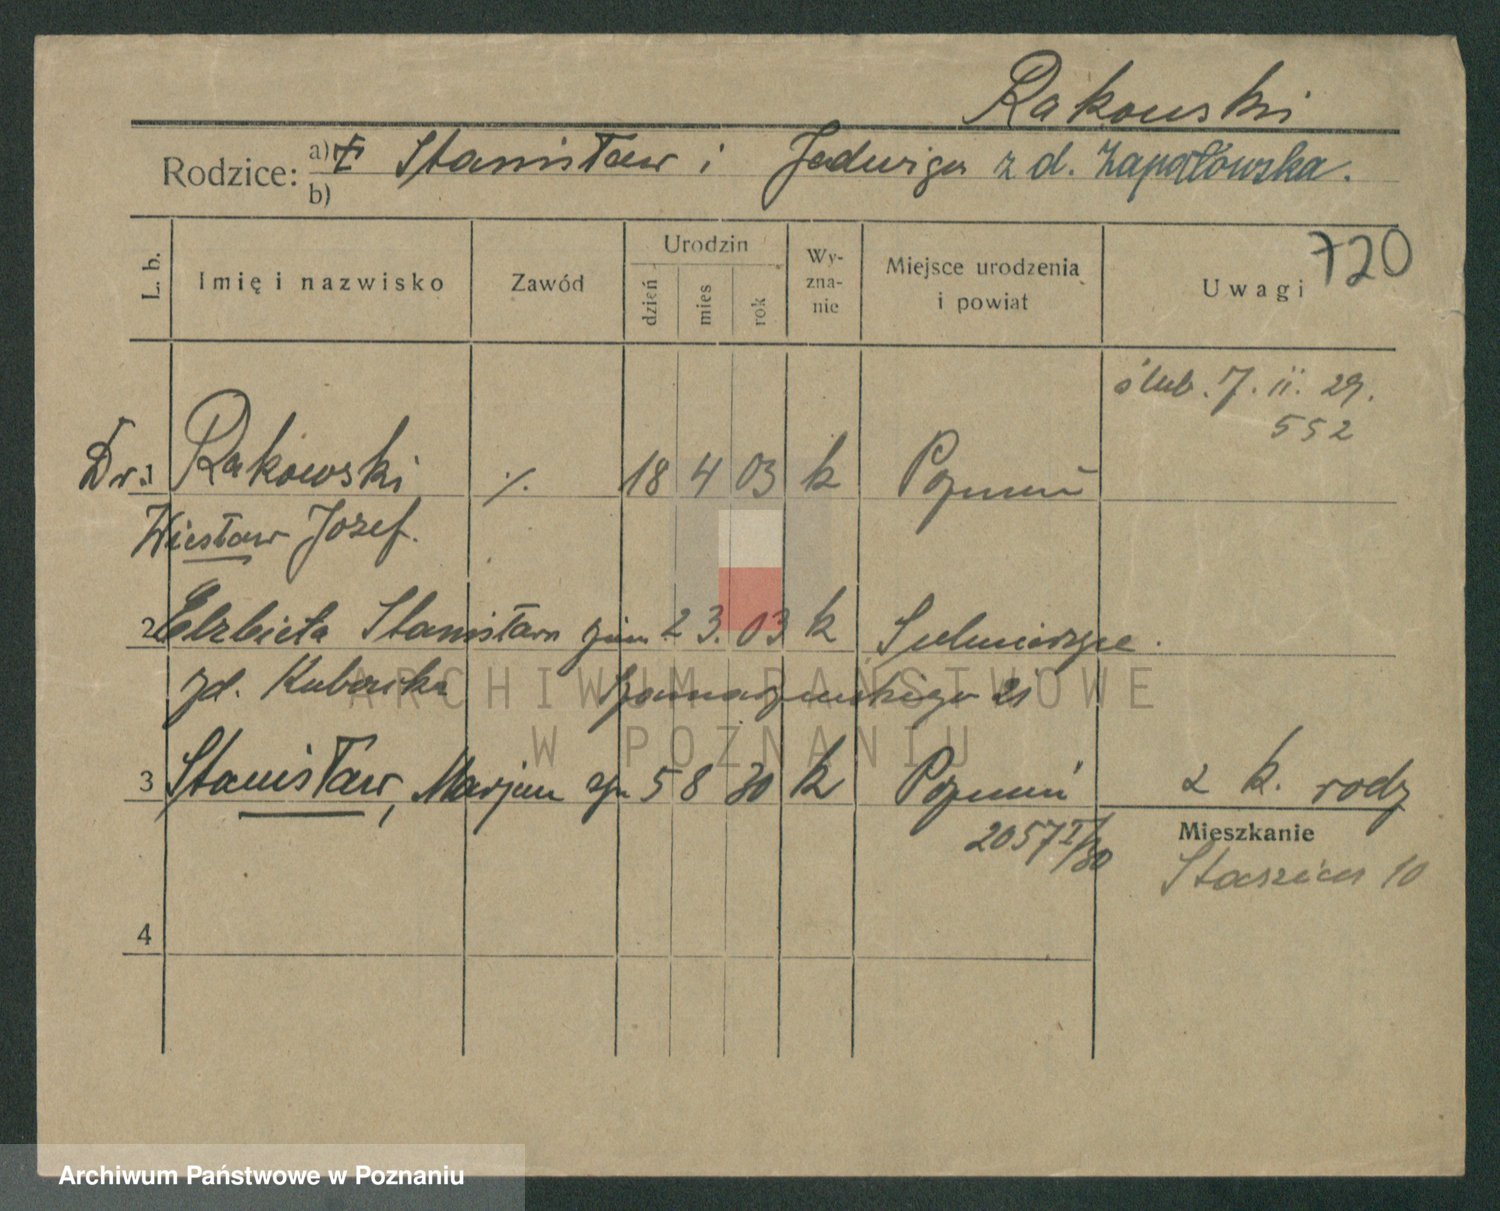 Rakowski
Rodzice: a) Stanisław i Jadwiga z d. Zapałowska.
b)
720
L. b. Imię i nazwisko Zawód Urodzin dzień mies rok Wy-zna-nie Miejsce urodzenia i powiat Uwagi
ślub. 7. II. 29.
552
Dr. 1 Rakowski ./. 18 4 03 k Poznań
Wiesław Józef.
2 Elżbieta Stanisława 2 3. 03 k Sulmierzyce.
zd. Kubacka 21
3 Stanisław, Marjan 5 8 30 k Poznań
2 k. rodz
2057 I/80
Mieszkanie
Staszica 10
4
ARCHIWUM PAŃSTWOWE
W POZNANIU
Archiwum Państwowe w Poznaniu